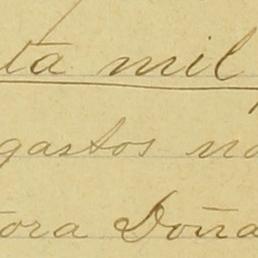 ta mil
gastos no
tora Doña